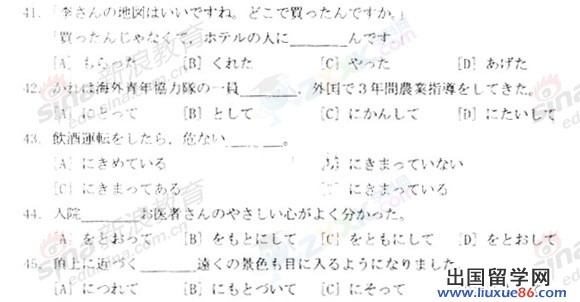 41. 「李さんの地図はいいですね。どこで買ったんですか。」
「買ったんじゃなくて、ホテルの人に______んです
[A] もらった [B] くれた [C] やった [D] あげた
42. かれは海外青年協力隊の一員______、外国で3年間農業指導をしてきた。
[A] にとって [B] として [C] にかんして [D] にたいして
43. 飲酒運転をしたら、危ない______。
[A] にきめている [B] にきまっていない
[C] にきまってある
44. 入院______お医者さんのやさしい心がよく分かった。
[A] をとおって [B] をもとにして [C] をともにして [D] をとおして
45. 頂上に近づく______遠くの景色も目に入るようになりました
[A] につれて [B] にもとづいて [C] にそって
sina 新浪教育
出国留学网
www.liuxue86.com